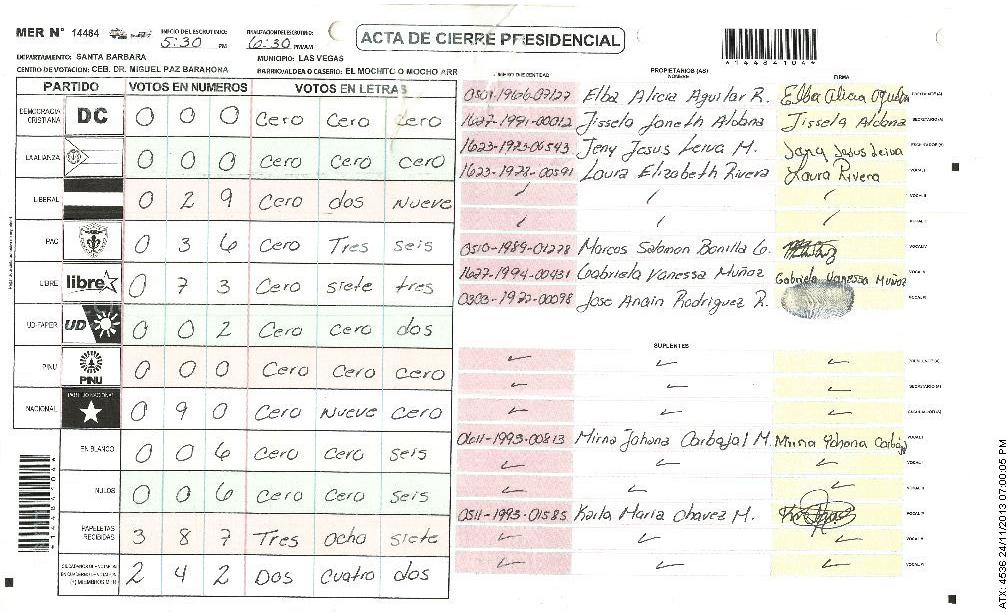 MER N° 14484
INICIO DEL ESCRUTINIO: 5:30 PM
FINALIZACION ESCRUTINIO: 6:30 PM/AM
ACTA DE CIERRE PRESIDENCIAL
*14484104*
DEPARTAMENTO: SANTA BARBARA
MUNICIPIO: LAS VEGAS
CENTRO DE VOTACION: CEB. DR. MIGUEL PAZ BARAHONA
BARRIO/ALDEA O CASERIO: EL MOCHITO O MOCHO ARR
PARTIDO VOTOS EN NUMEROS VOTOS EN LETRAS
DEMOCRACIA CRISTIANA DC 0 0 0 Cero Cero Cero
0 0 0 Cero Cero cero
LIBERAL 0 2 9 Cero dos Nueve
PAC 0 3 6 Cero Tres seis
LIBRE libre 0 7 3 Cero siete tres
UD-FAPER UD 0 0 2 Cero cero dos
PINU PINU 0 0 0 Cero Cero cero
NACIONAL PARTIDO NACIONAL 0 9 0 Cero Nueve cero
EN BLANCO 0 0 6 Cero Cero seis
NULOS 0 0 6 Cero Cero seis
PAPELETAS RECIBIDAS 3 8 7 Tres Ocho siete
2 4 2 Dos cuatro dos
PROPIETARIOS (AS)
NOMBRE FIRMA
Elba Alicia Aguilar R.
1627-1991-00012 Jissela Janeth Aldana Jissela Aldana
Jeny Jesus Leiva M. Jesus Leiva
1623-1978-00591 Laura Elizabeth Rivera Laura Rivera
0510-1989-01278 Marcos Salomon Bonilla G.
1627-1994-00431 Gabriela Vanessa Muñoz Gabriela Vanessa Muñoz
Jose Rodriguez R.
SUPLENTES
0611-1993-00813 Mirna Johana Carbajal M.
0511-1993-01585 Karla Maria Chavez M.
*14484104*
ATX: 4536 24/11/2013 07:00:05 PM